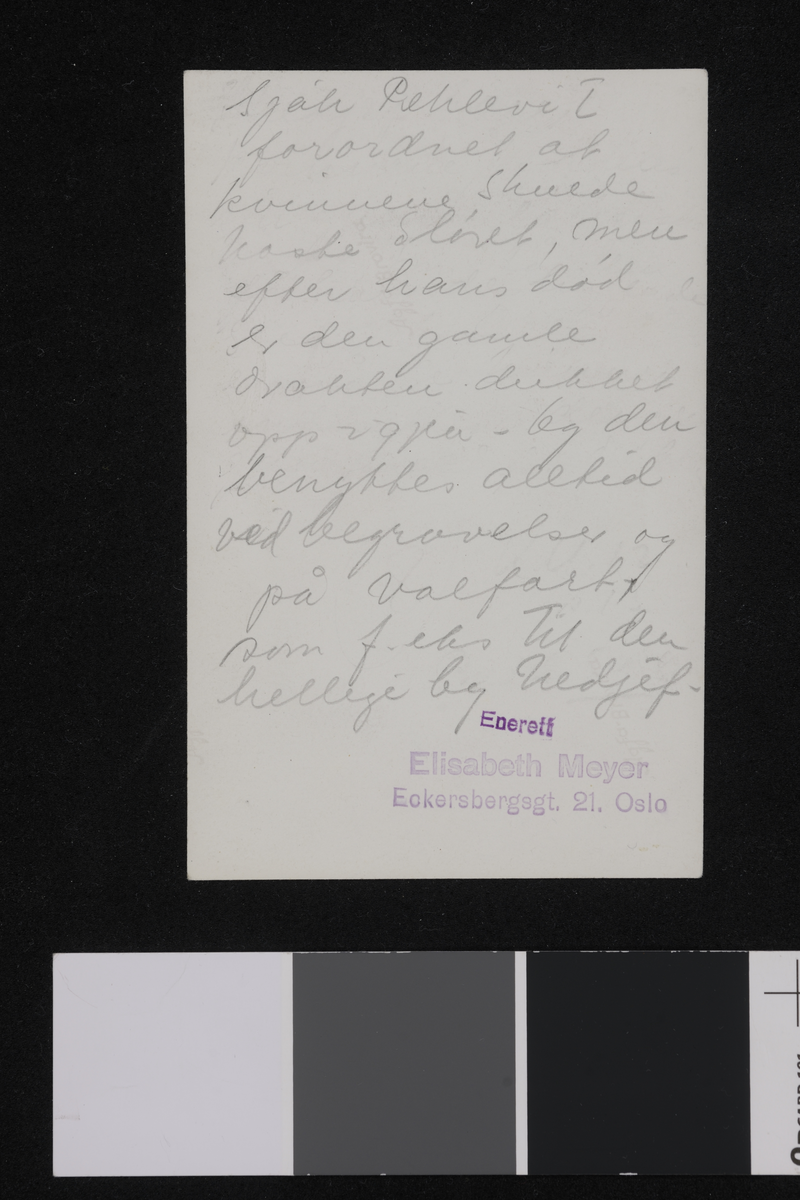 Sjah Pehlevi I
forordnet at
kvinnene skuede
kaste sløret, men
efter hans død
er den gamle
drakten dukket
opp igjen - og den
benyttes alltid
ved begravelser og
på valfart,
som f. eks til den
hellige by Nedjef -
Enerett
Elisabeth Meyer
Eckersbergsgt. 21. Oslo